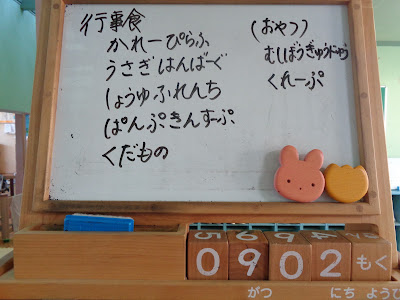 行事食
かれーぴらふ
うさぎはんばーぐ
しょうゆふれんち
ぱんぷきんすーぷ
くだもの
(おやつ)
むしぱうぎゅうにゅう
くれーぷ
0902もく
がつ にち ようび